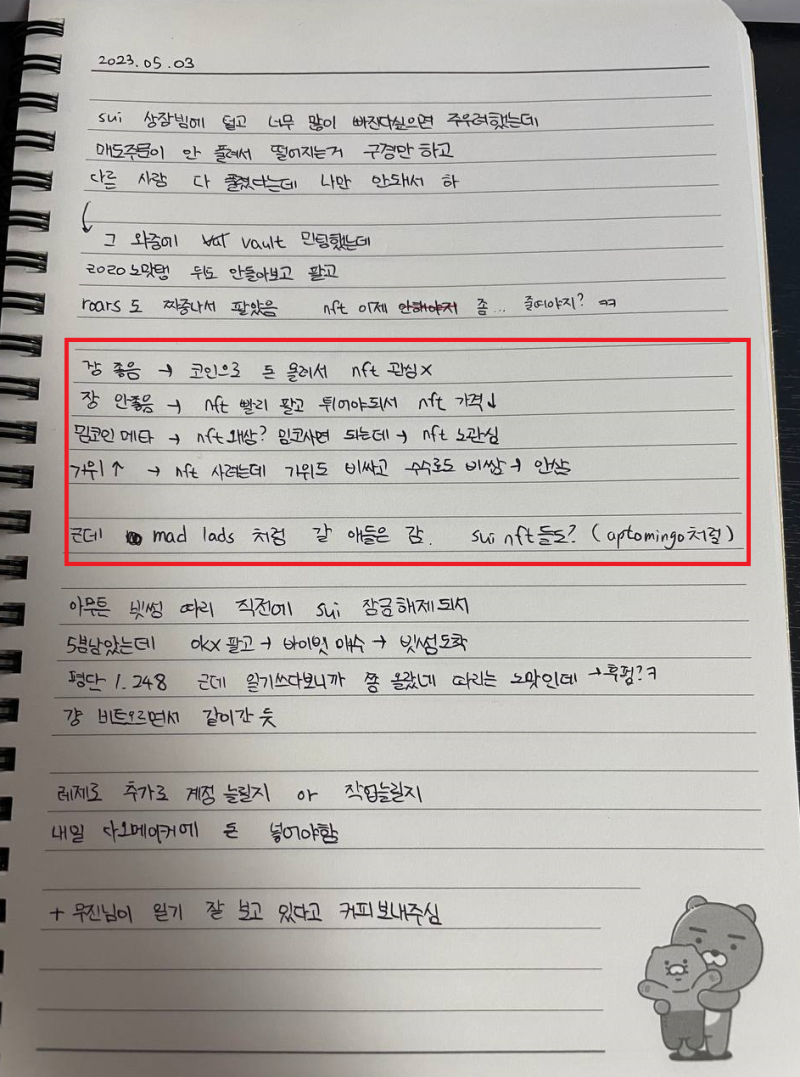 2023.05.03
sui 상장빔에 털고 너무 많이 빠진다싶으면 주우려했는데
매도주문이 안 풀려서 떨어지는거 구경만 하고
다른 사람 다 풀렸다는데 나만 안돼서 하
그 와중에 vault 민팅했는데
2020노맛탱 뒤도 안돌아보고 팔고
roars도 짜증나서 팔았음 nft 이제 안해야지 좀... 줄여야지? ㅋㅋ
장 좋음 → 코인으로 돈 몰려서 nft 관심×
장 안좋음 → nft 빨리 팔고 튀어야되서 nft 가격↓
밈코인 메타 → nft 왜삼? 밈코사면 되는데 → nft 노관심
가위↑ → nft 사려는데 가위도 비싸고 수수료도 비쌈 → 안삼
근데 mad lads 처럼 갈 애들은 감. sui nft들도? (aptomingo처럼)
아무튼 빗썸 따리 직전에 sui 잠금해제되서
5분남았는데 okx 팔고 → 바이빗 매수 → 빗썸도착
평단 1.248 근데 일기쓰다보니까 쫌 올랐네 따리는 노맛인데 → 후펌?ㅋ
걍 비트오르면서 같이간 듯
레제로 추가로 계정 늘릴지 or 작업늘릴지
내일 다오메이커에 돈 넣어야함
+ 무진님이 일기 잘 보고 있다고 커피보내주심